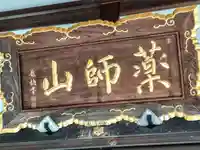 薬師山